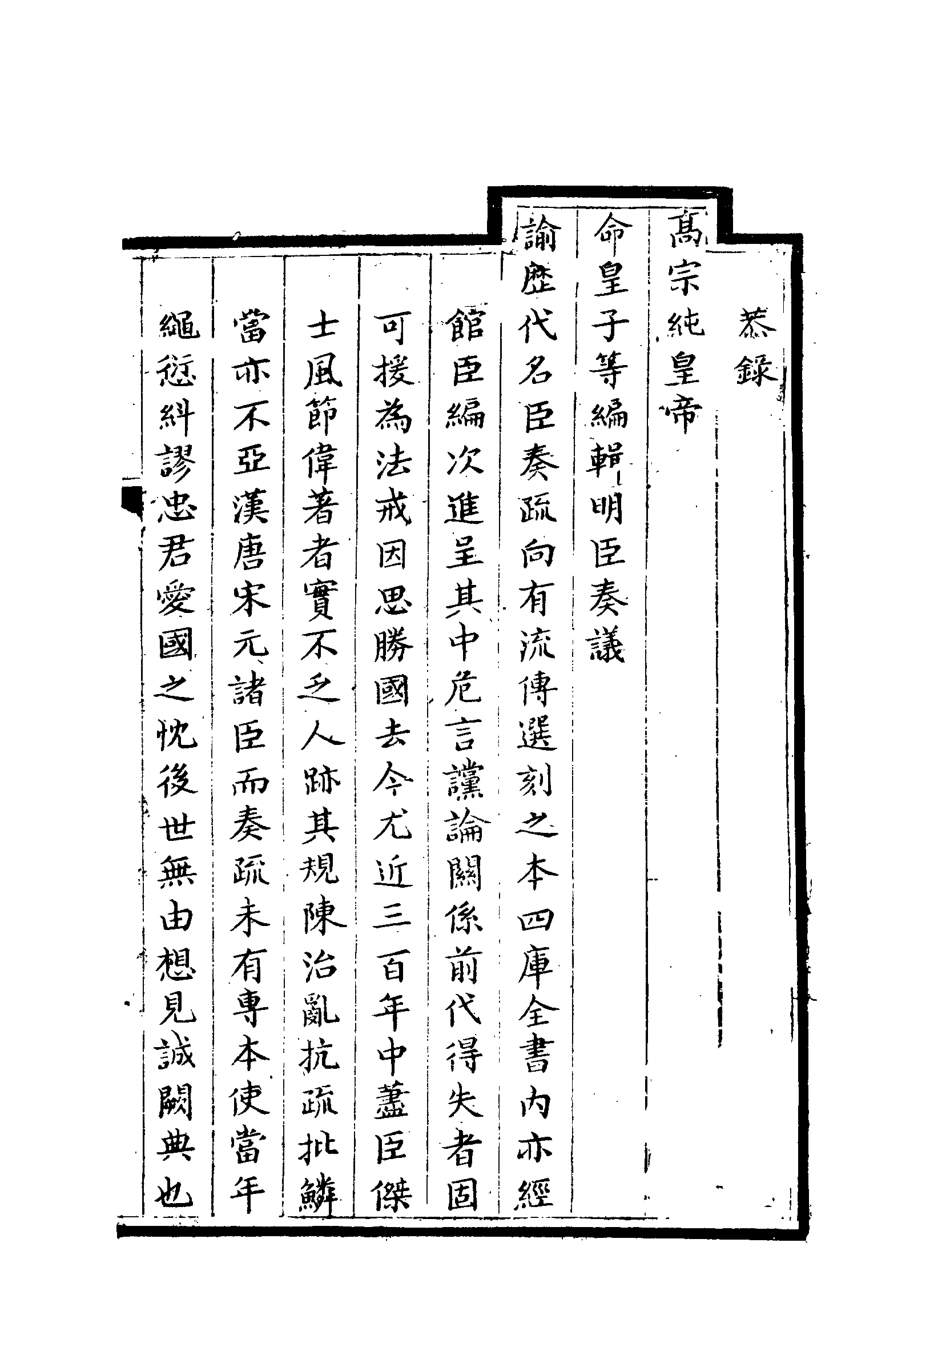 恭錄
髙宗純皇帝
命皇子等編輯明臣奏議
諭歴代名臣奏疏向有流傳選刻之本四庫全書内亦經
館臣編次進呈其中危言讜論關係前代得失者固
可援為法戒因思勝國去今尤近三百年中藎臣傑
士風節偉著者實不乏人跡其規陳治亂抗疏批鱗
當亦不亞漢唐宋元諸臣而奏疏未有專本使當年
繩愆糾謬忠君愛國之忱後世無由想見誠闕典也